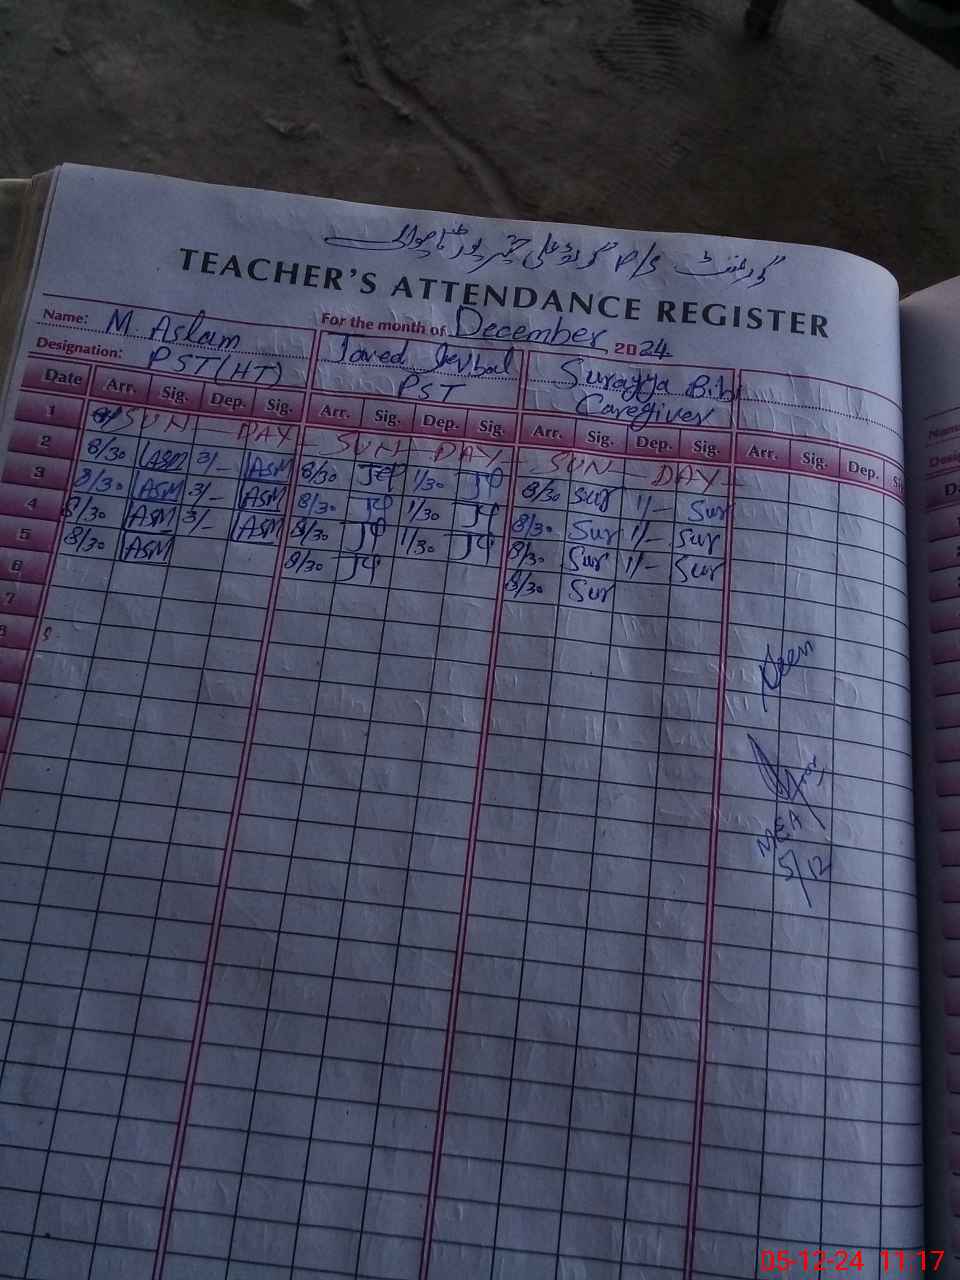 گورنمنٹ P/S
TEACHER'S ATTENDANCE REGISTER
For the month of December 2024
Name: M. Aslam Javed Iqbal Surayya Bibi
Designation: PST(HT) PST Caregiver
Date Arr. Sig. Dep. Sig. Arr. Sig. Dep. Sig. Arr. Sig. Dep. Sig. Arr. Sig. Dep.
1 SUN - DAY - SUN - DAY - SUN - DAY -
2 8/30 ASM 3/- ASM 8/30 1/30 8/30 Sur 1/- Sur
3 8/30 ASM 3/- ASM 8/30 1/30 8/30 Sur 1/- Sur
4 8/30 ASM 3/- ASM 8/30 1/30 8/30 Sur 1/- Sur
5 8/30 ASM 8/30 8/30 Sur
6
7
8
Seen
MEA
5/12
05-12-24 11:17